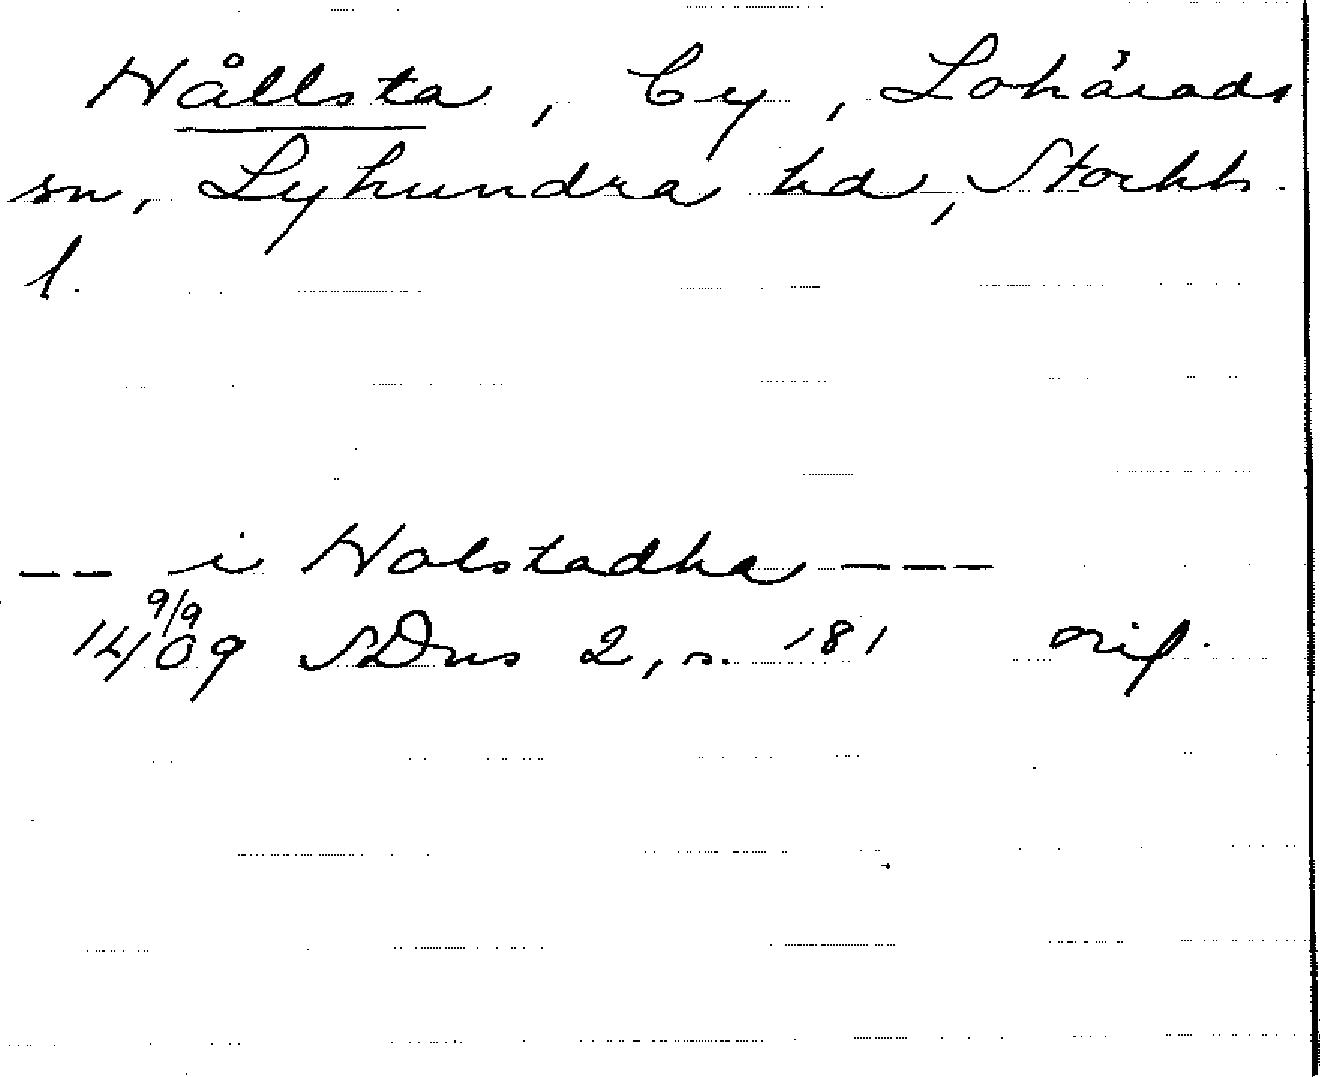 Hållsta, by, Lohärads
sn, Lyhundra hd, Stockh.
l.
-- i Halstadha ---
9/9
1409 SDns 2, s. 181 orig.